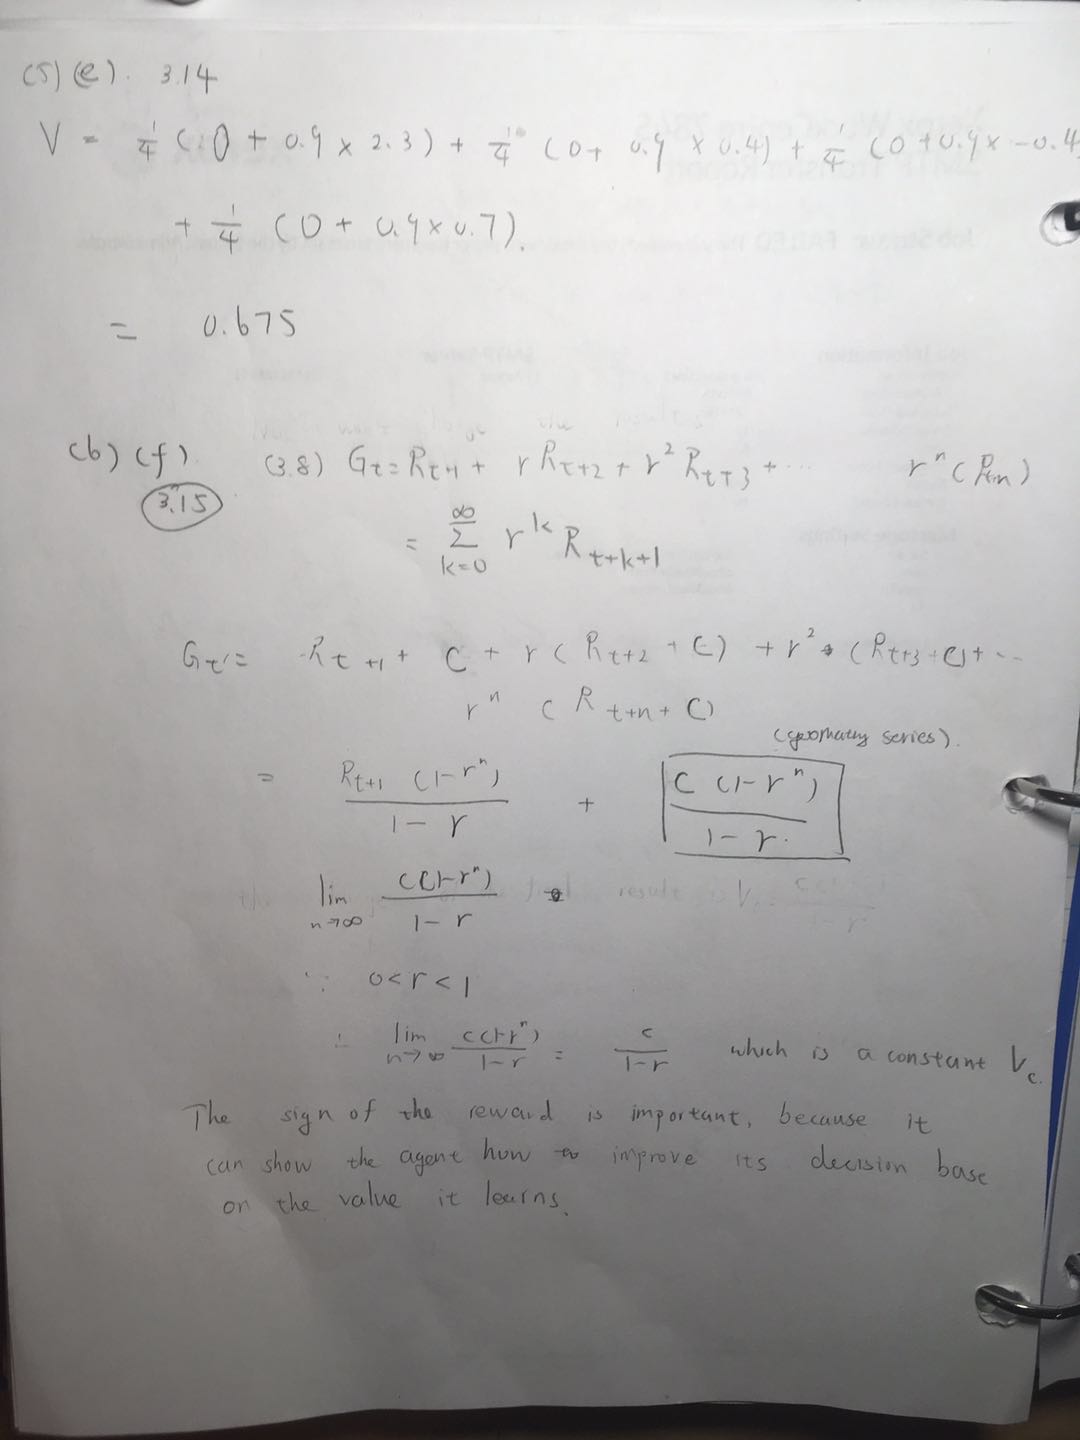 (5) (e). 3.14
V = 1/4 (0 + 0.9 × 2.3) + 1/4 (0 + 0.9 × 0.4) + 1/4 (0 + 0.9 × -0.4)
+ 1/4 (0 + 0.9 × 0.7).
= 0.675
(b) (f). (3.8) G_t = R_t+1 + r R_t+2 + r² R_t+3 + ... r^n (R_t+n)
3.15
= ∞Σk=0 r^k R_t+k+1
G_t' = R_t+1 + C + r (R_t+2 + C) + r² (R_t+3 + C) + ...
r^n (R_t+n + C)
(geometry series).
= R_t+1 (1-r^n) / 1-r + C (1-r^n) / 1-r.
lim n→∞ C(1-r^n) / 1-r
∵ 0<r<1
∴ lim n→∞ C(1-r^n) / 1-r = c / 1-r which is a constant V_c.
The sign of the reward is important, because it
can show the agent how to improve its decision base
on the value it learns.